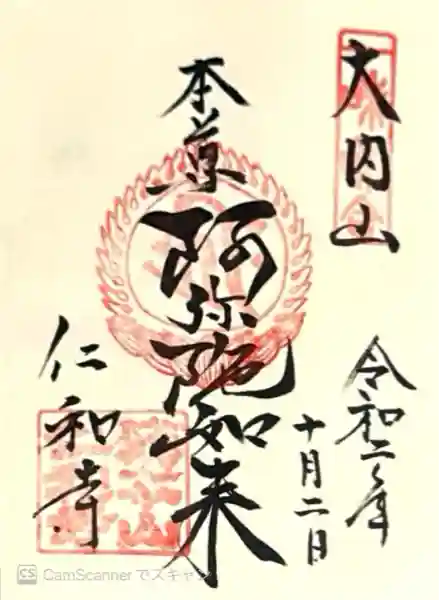 大内山
令和二年
十月二日
本尊
阿弥陀如来
仁和寺
CS CamScanner でスキャン